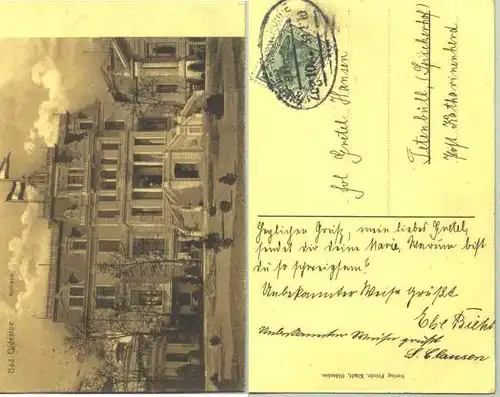 Bad Oldesloe Kurhaus.
Frl. Gretel Hansen
Tetenbüll, (Spiekerhof)
Post Katharinenherd
Herzlichen Gruß, mein liebes Gretel,
sendet dir deine Marie. Warum bist
du so schweigsam?
Unbekannter Weise grüßt
Unbekannter Weise grüßt
S. Clausen
Verlag Friedr. Kladt, Oldesloe.